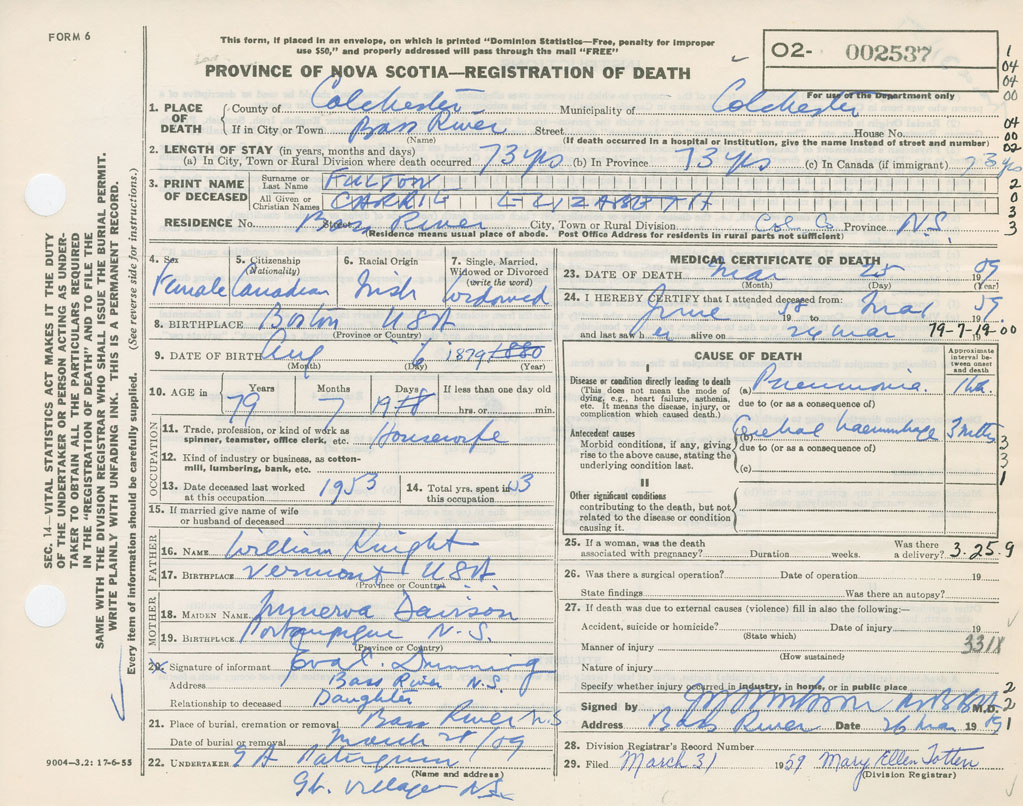 FORM 6
This form, if placed in an envelope, on which is printed "Dominion Statistics—Free, penalty for improper
use $50," and properly addressed will pass through the mail "FREE"
PROVINCE OF NOVA SCOTIA—REGISTRATION OF DEATH
02- 002537
For use of the Department only
1. PLACE OF DEATH County of Colchester Municipality of Colchester
If in City or Town Bass River Street House No.
(Name) (If death occurred in a hospital or institution, give the name instead of street and number)
2. LENGTH OF STAY (in years, months and days)
(a) In City, Town or Rural Division where death occurred 73 yrs (b) In Province 73 yrs (c) In Canada (if immigrant) 73 yrs
3. PRINT NAME OF DECEASED Surname or Last Name FULTON
All Given or Christian Names CARRIE ELIZABETH
RESIDENCE No. Street Bass River City, Town or Rural Division Col Co Province N.S.
(Residence means usual place of abode. Post Office Address for residents in rural parts not sufficient)
4. Sex Female
5. Citizenship (Nationality) Canadian
6. Racial Origin Irish
7. Single, Married, Widowed or Divorced (write the word) widowed
8. BIRTHPLACE Boston USA
(Province or Country)
9. DATE OF BIRTH Aug 6 1879 1880
(Month) (Day) (Year)
10. AGE in Years Months Days If less than one day old
79 7 19 hrs. or min.
11. Trade, profession, or kind of work as spinner, teamster, office clerk, etc. Housewife
12. Kind of industry or business, as cotton-mill, lumbering, bank, etc.
13. Date deceased last worked at this occupation 1953
14. Total yrs. spent in this occupation 53
OCCUPATION
15. If married give name of wife or husband of deceased
FATHER
16. NAME William Knight
17. BIRTHPLACE Vermont USA
(Province or Country)
MOTHER
18. MAIDEN NAME Minerva Davison
19. BIRTHPLACE Portaupique N.S.
(Province or Country)
20. Signature of informant Eva C. Dunning
Address Bass River N.S.
Relationship to deceased Daughter
21. Place of burial, cremation or removal Bass River N.S
Date of burial or removal March 28/59
22. UNDERTAKER
(Name and address)
Gt. Village N.S.
MEDICAL CERTIFICATE OF DEATH
23. DATE OF DEATH Mar 25 1959
(Month) (Day) (Year)
24. I HEREBY CERTIFY that I attended deceased from:
June 58 to Mar 1959
and last saw h er alive on 24 Mar 79-7-19-00
CAUSE OF DEATH
Approximate interval between onset and death
I
Disease or condition directly leading to death
(This does not mean the mode of dying, e.g., heart failure, asthenia, etc. It means the disease, injury, or complication which caused death.)
(a) Pneumonia
due to (or as a consequence of)
Antecedent causes
Morbid conditions, if any, giving rise to the above cause, stating the underlying condition last.
(b) Cerebral haemorrhage 3 mths
due to (or as a consequence of)
(c)
II
Other significant conditions
contributing to the death, but not related to the disease or condition causing it.
25. If a woman, was the death associated with pregnancy? Duration weeks. Was there a delivery? 3.25.9
26. Was there a surgical operation? Date of operation 19
State findings Was there an autopsy?
27. If death was due to external causes (violence) fill in also the following:—
Accident, suicide or homicide? Date of injury 19
(State which)
Manner of injury 331X
(How sustained)
Nature of injury
Specify whether injury occurred in industry, in home, or in public place
Signed by M.D.
Address Bass River Date 26 Mar 19
28. Division Registrar's Record Number
29. Filed March 31 1959 Mary Ellen Totten
(Division Registrar)
SEC. 14—VITAL STATISTICS ACT MAKES IT THE DUTY
OF THE UNDERTAKER OR PERSON ACTING AS UNDER-
TAKER TO OBTAIN ALL THE PARTICULARS REQUIRED
IN THE "REGISTRATION OF DEATH" AND TO FILE THE
SAME WITH THE DIVISION REGISTRAR WHO SHALL ISSUE THE BURIAL PERMIT.
WRITE PLAINLY WITH UNFADING INK. THIS IS A PERMANENT RECORD.
Every item of information should be carefully supplied. (See reverse side for instructions.)
9004—3.2: 17-6-55
1
04
04
00
04
00
02
2
0
3
3
3
3
1
2
2
1